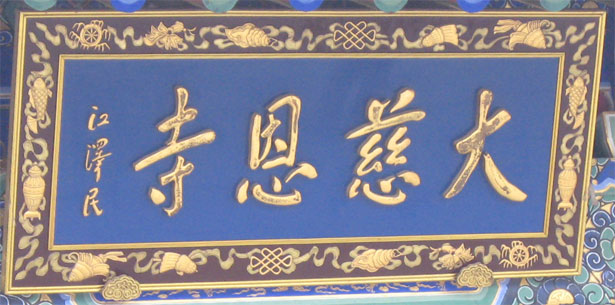 大慈恩寺
江澤民